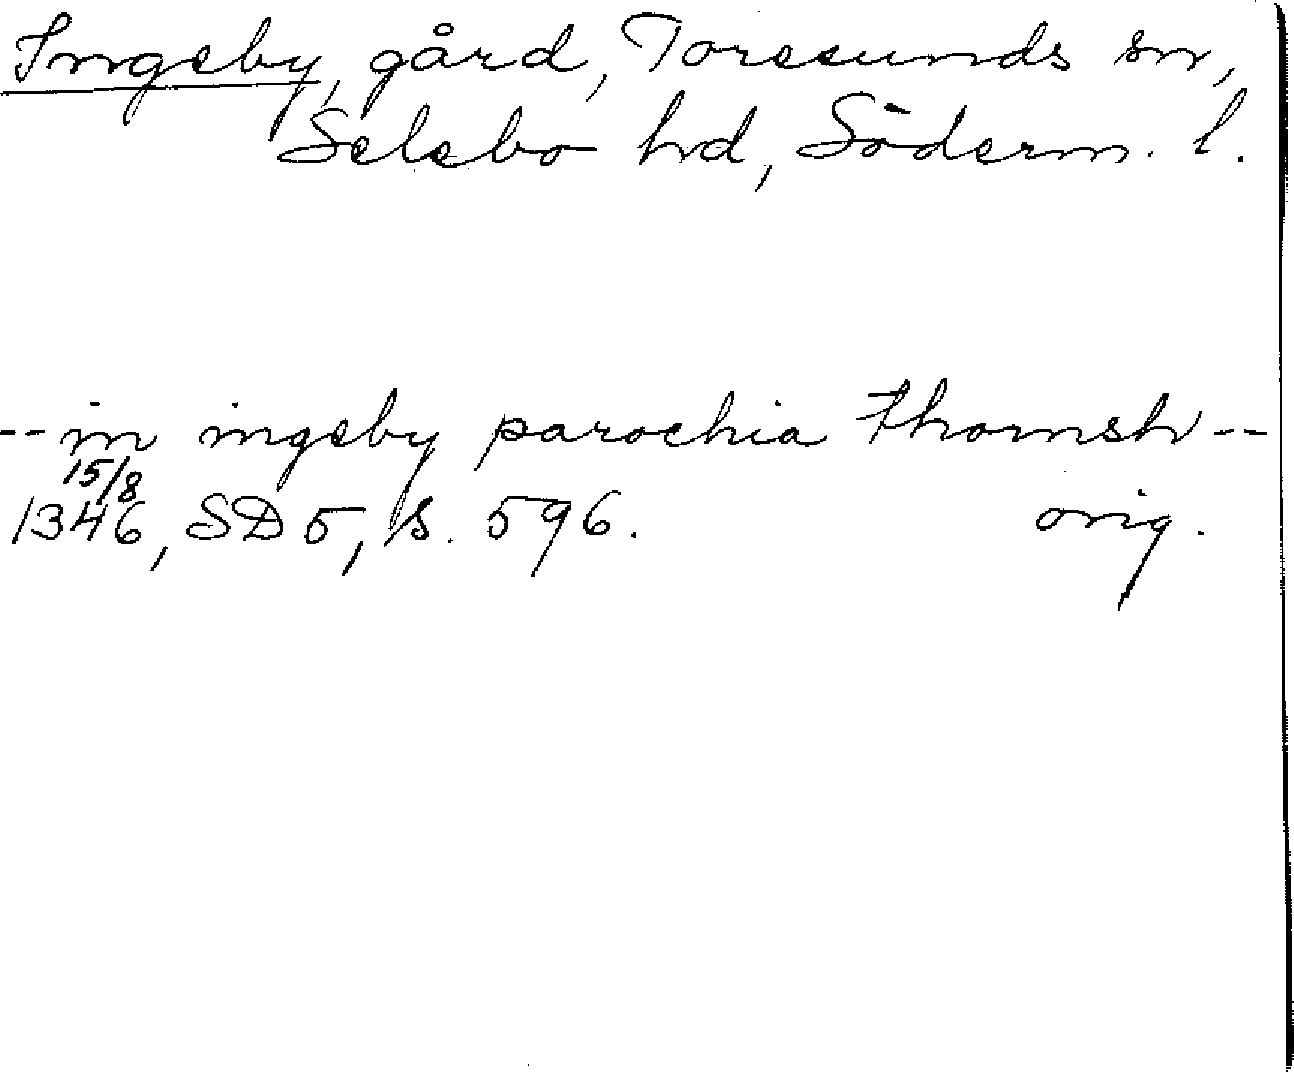 Ingeby, gård, Toresunds sn,
Selebo hd, Söderm. l.
-- in ingeby parochia thornsh --
15/8
1346, SD 5, s. 596. orig.